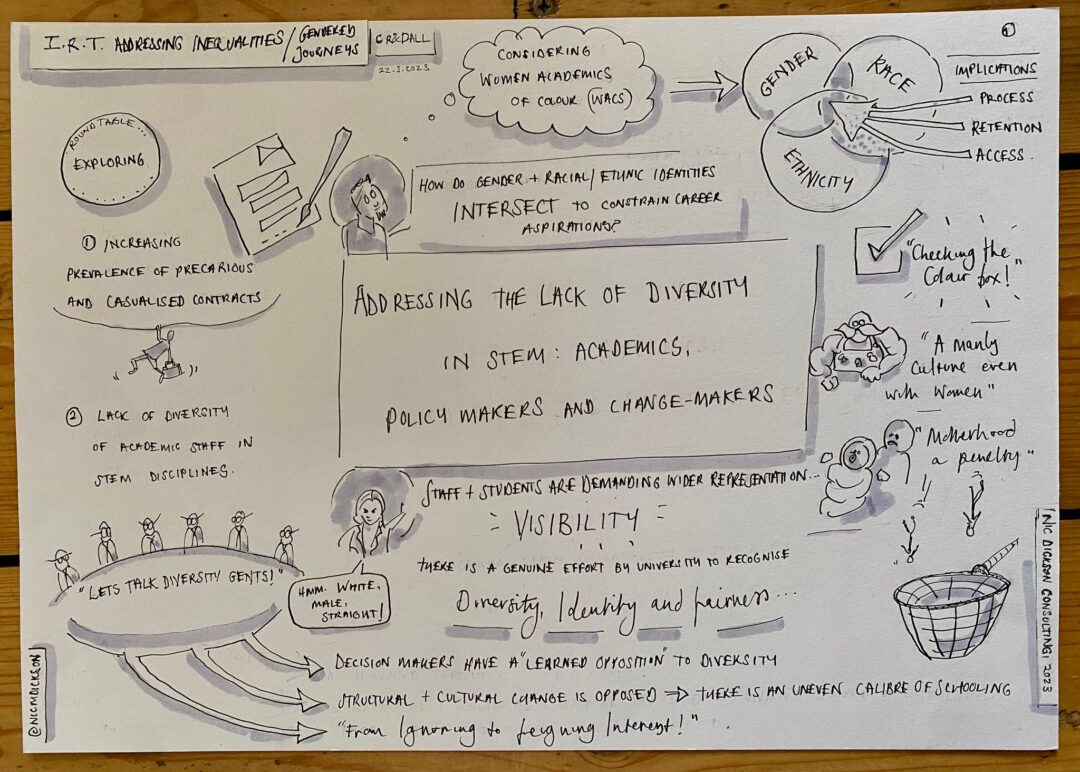 I.R.T. ADDRESSING INEQUALITIES / GENDERED JOURNEYS
CR&DALL
22.3.2023
CONSIDERING
WOMEN ACADEMICS
OF COLOUR (WACS)
GENDER
RACE
ETHNICITY
1
IMPLICATIONS
PROCESS
RETENTION
ACCESS.
ROUNDTABLE...
EXPLORING
HOW DO GENDER + RACIAL/ETHNIC IDENTITIES
INTERSECT TO CONSTRAIN CAREER
ASPIRATIONS?
1 INCREASING
PREVALENCE OF PRECARIOUS
AND CASUALISED CONTRACTS
2 LACK OF DIVERSITY
OF ACADEMIC STAFF IN
STEM DISCIPLINES.
ADDRESSING THE LACK OF DIVERSITY
IN STEM: ACADEMICS,
POLICY MAKERS AND CHANGE-MAKERS
"Checking the
Colour box!"
"A manly
culture even
with women"
"Motherhood
a penalty"
STAFF + STUDENTS ARE DEMANDING WIDER REPRESENTATION...
= VISIBILITY =
THERE IS A GENUINE EFFORT BY UNIVERSITY TO RECOGNISE
Diversity, Identity and fairness...
"LETS TALK DIVERSITY GENTS!"
HMM. WHITE,
MALE,
STRAIGHT!
DECISION MAKERS HAVE A "LEARNED OPPOSITION" TO DIVERSITY
STRUCTURAL + CULTURAL CHANGE IS OPPOSED ⇒ THERE IS AN UNEVEN CALIBRE OF SCHOOLING
"From Ignoring to feigning Interest!"
@NICMDICKSON
NIC DICKSON CONSULTING 2023